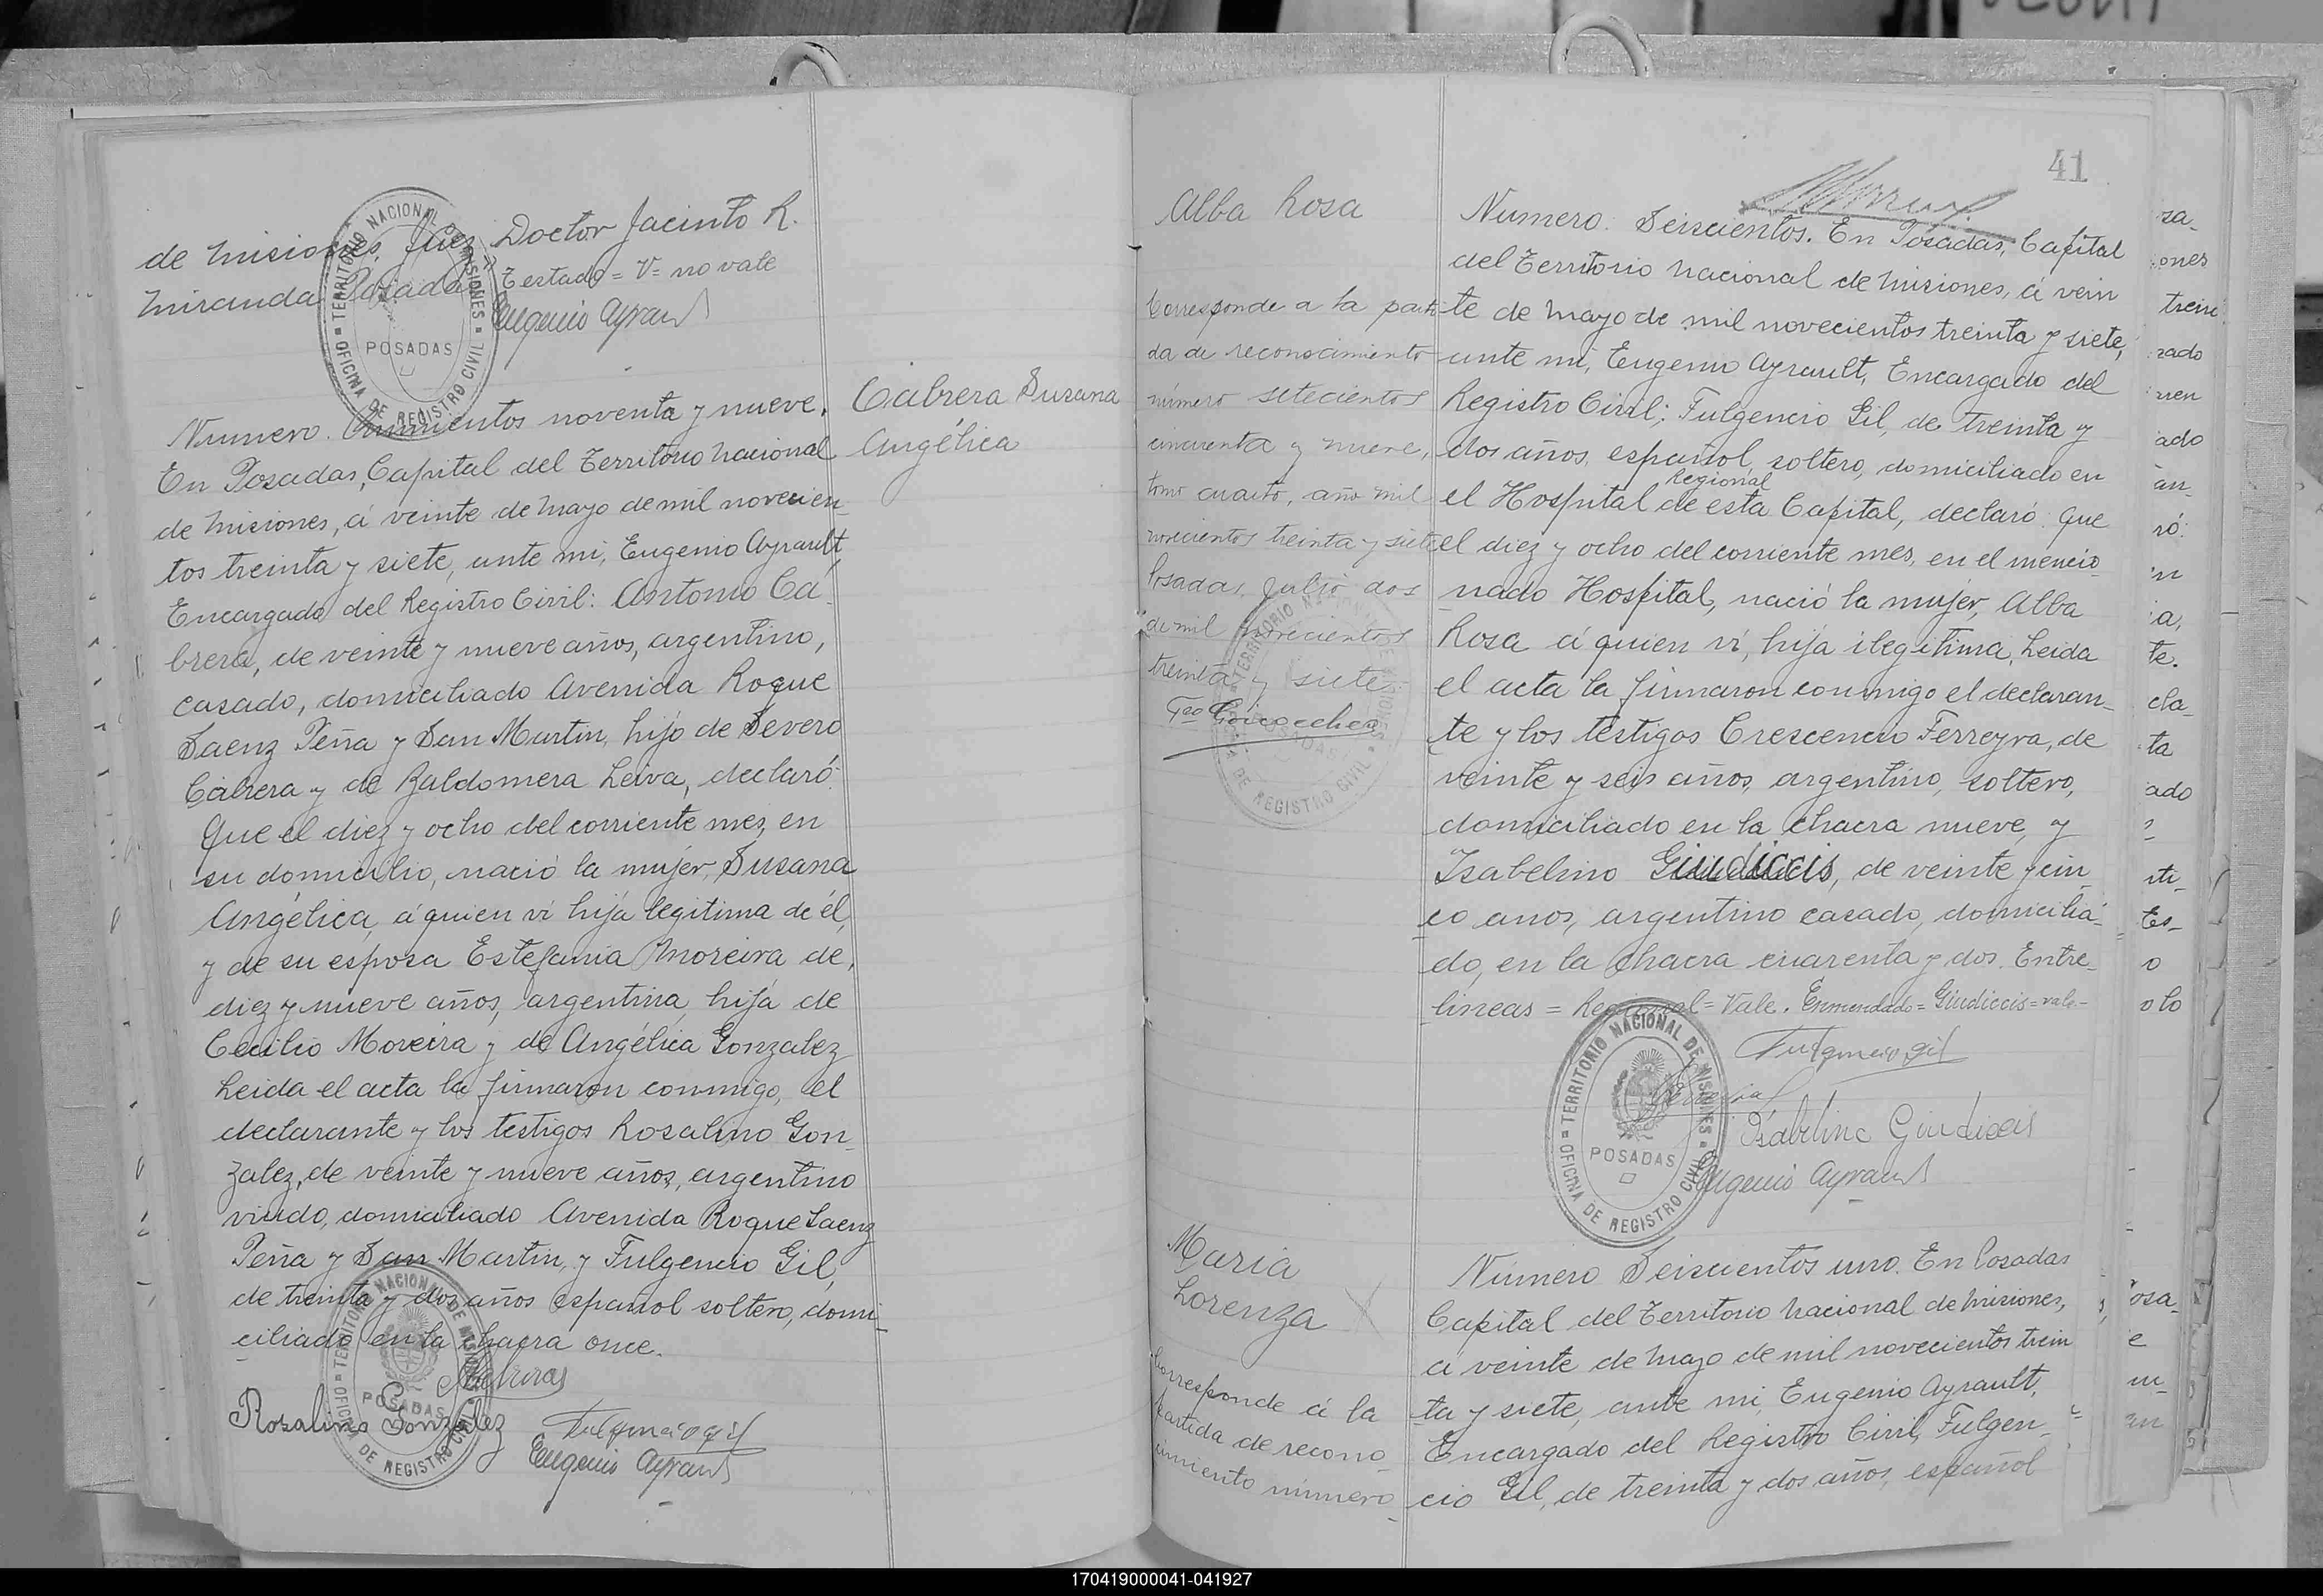 de Misiones, Juez Doctor Jacinto R.
Miranda Posadas Testado = V = no vale
Eugenio Ayrault
TERRITORIO NACIONAL DE MISIONES
POSADAS
OFICINA DE REGISTRO CIVIL
Cabrera Susana
Angélica
Numero. Quinientos noventa y nueve.
En Posadas, Capital del Territorio Nacional
de Misiones, á veinte de Mayo de mil novecien-
tos treinta y siete, ante mi, Eugenio Ayrault,
Encargado del Registro Civil: Antonio Ca-
brera, de veinte y nueve años, argentino,
casado, domiciliado Avenida Roque
Saenz Peña y San Martin, hijo de Severo
Cabrera y de Baldomera Leiva, declaró:
Que el diez y ocho del corriente mes, en
su domicilio, nació la mujer, Susana
Angélica, á quien ví hija legitima de él,
y de su esposa Estefania Moreira de,
diez y nueve años, argentina, hija de
Cecilio Moreira y de Angélica Gonzalez
Leida el acta la firmaron conmigo, el
declarante y los testigos Rosalino Gon-
zalez, de veinte y nueve años, argentino
viudo, domiciliado Avenida Roque Saenz
Peña y San Martin, y Fulgencio Gil,
de treinta y dos años español soltero, domi-
ciliado en la chacra once.
Cabrera
Rosalino Gonzalez
Fulgencio gil
Eugenio Ayrault
TERRITORIO NACIONAL DE MISIONES
POSADAS
OFICINA DE REGISTRO CIVIL
41
Alba Rosa
Corresponde a la parti-
da de reconocimiento
número setecientos
cincuenta y nueve,
tomo cuarto, año mil
novecientos treinta y siete
Posadas, Julio dos
de mil novecientos
treinta y siete
Goicoechea
TERRITORIO NACIONAL DE MISIONES
POSADAS
OFICINA DE REGISTRO CIVIL
Numero. Seiscientos. En Posadas, Capital
del Territorio Nacional de Misiones, á vein
te de Mayo de mil novecientos treinta y siete,
ante mi, Eugenio Ayrault, Encargado del
Registro Civil: Fulgencio Gil, de treinta y
dos años, español, soltero, domiciliado en
Regional
el Hospital de esta Capital, declaró: Que
el diez y ocho del corriente mes, en el mencio-
nado Hospital, nació la mujer, Alba
Rosa á quien ví, hija ilegitima, Leida
el acta la firmaron conmigo el declaran-
te y los testigos Crescencio Ferreyra, de
veinte y seis años, argentino, soltero,
domiciliado en la chacra nueve, y
Isabelino Giudiccis, de veinte y cin-
co años, argentino casado, domicilia-
do, en la chacra cuarenta y dos. Entre-
lineas = Regional = Vale. Enmendado = Giudiccis = vale-
Fulgencio gil
Isabelino Giudiccis
Eugenio Ayrault
TERRITORIO NACIONAL DE MISIONES
POSADAS
OFICINA DE REGISTRO CIVIL
Maria
Lorenza
Corresponde á la
partida de recono-
cimiento número
Número Seiscientos uno. En Posadas
Capital del Territorio Nacional de Misiones,
á veinte de Mayo de mil novecientos trein
ta y siete, ante mi, Eugenio Ayrault,
Encargado del Registro Civil, Fulgen-
cio Gil, de treinta y dos años, español
za-
ones
trein
zado
nen
ado
an-
ró:
in
ia,
te.
cla-
ta
ado
sti-
tes-
o
olo
osa-
e
170419000041-041927